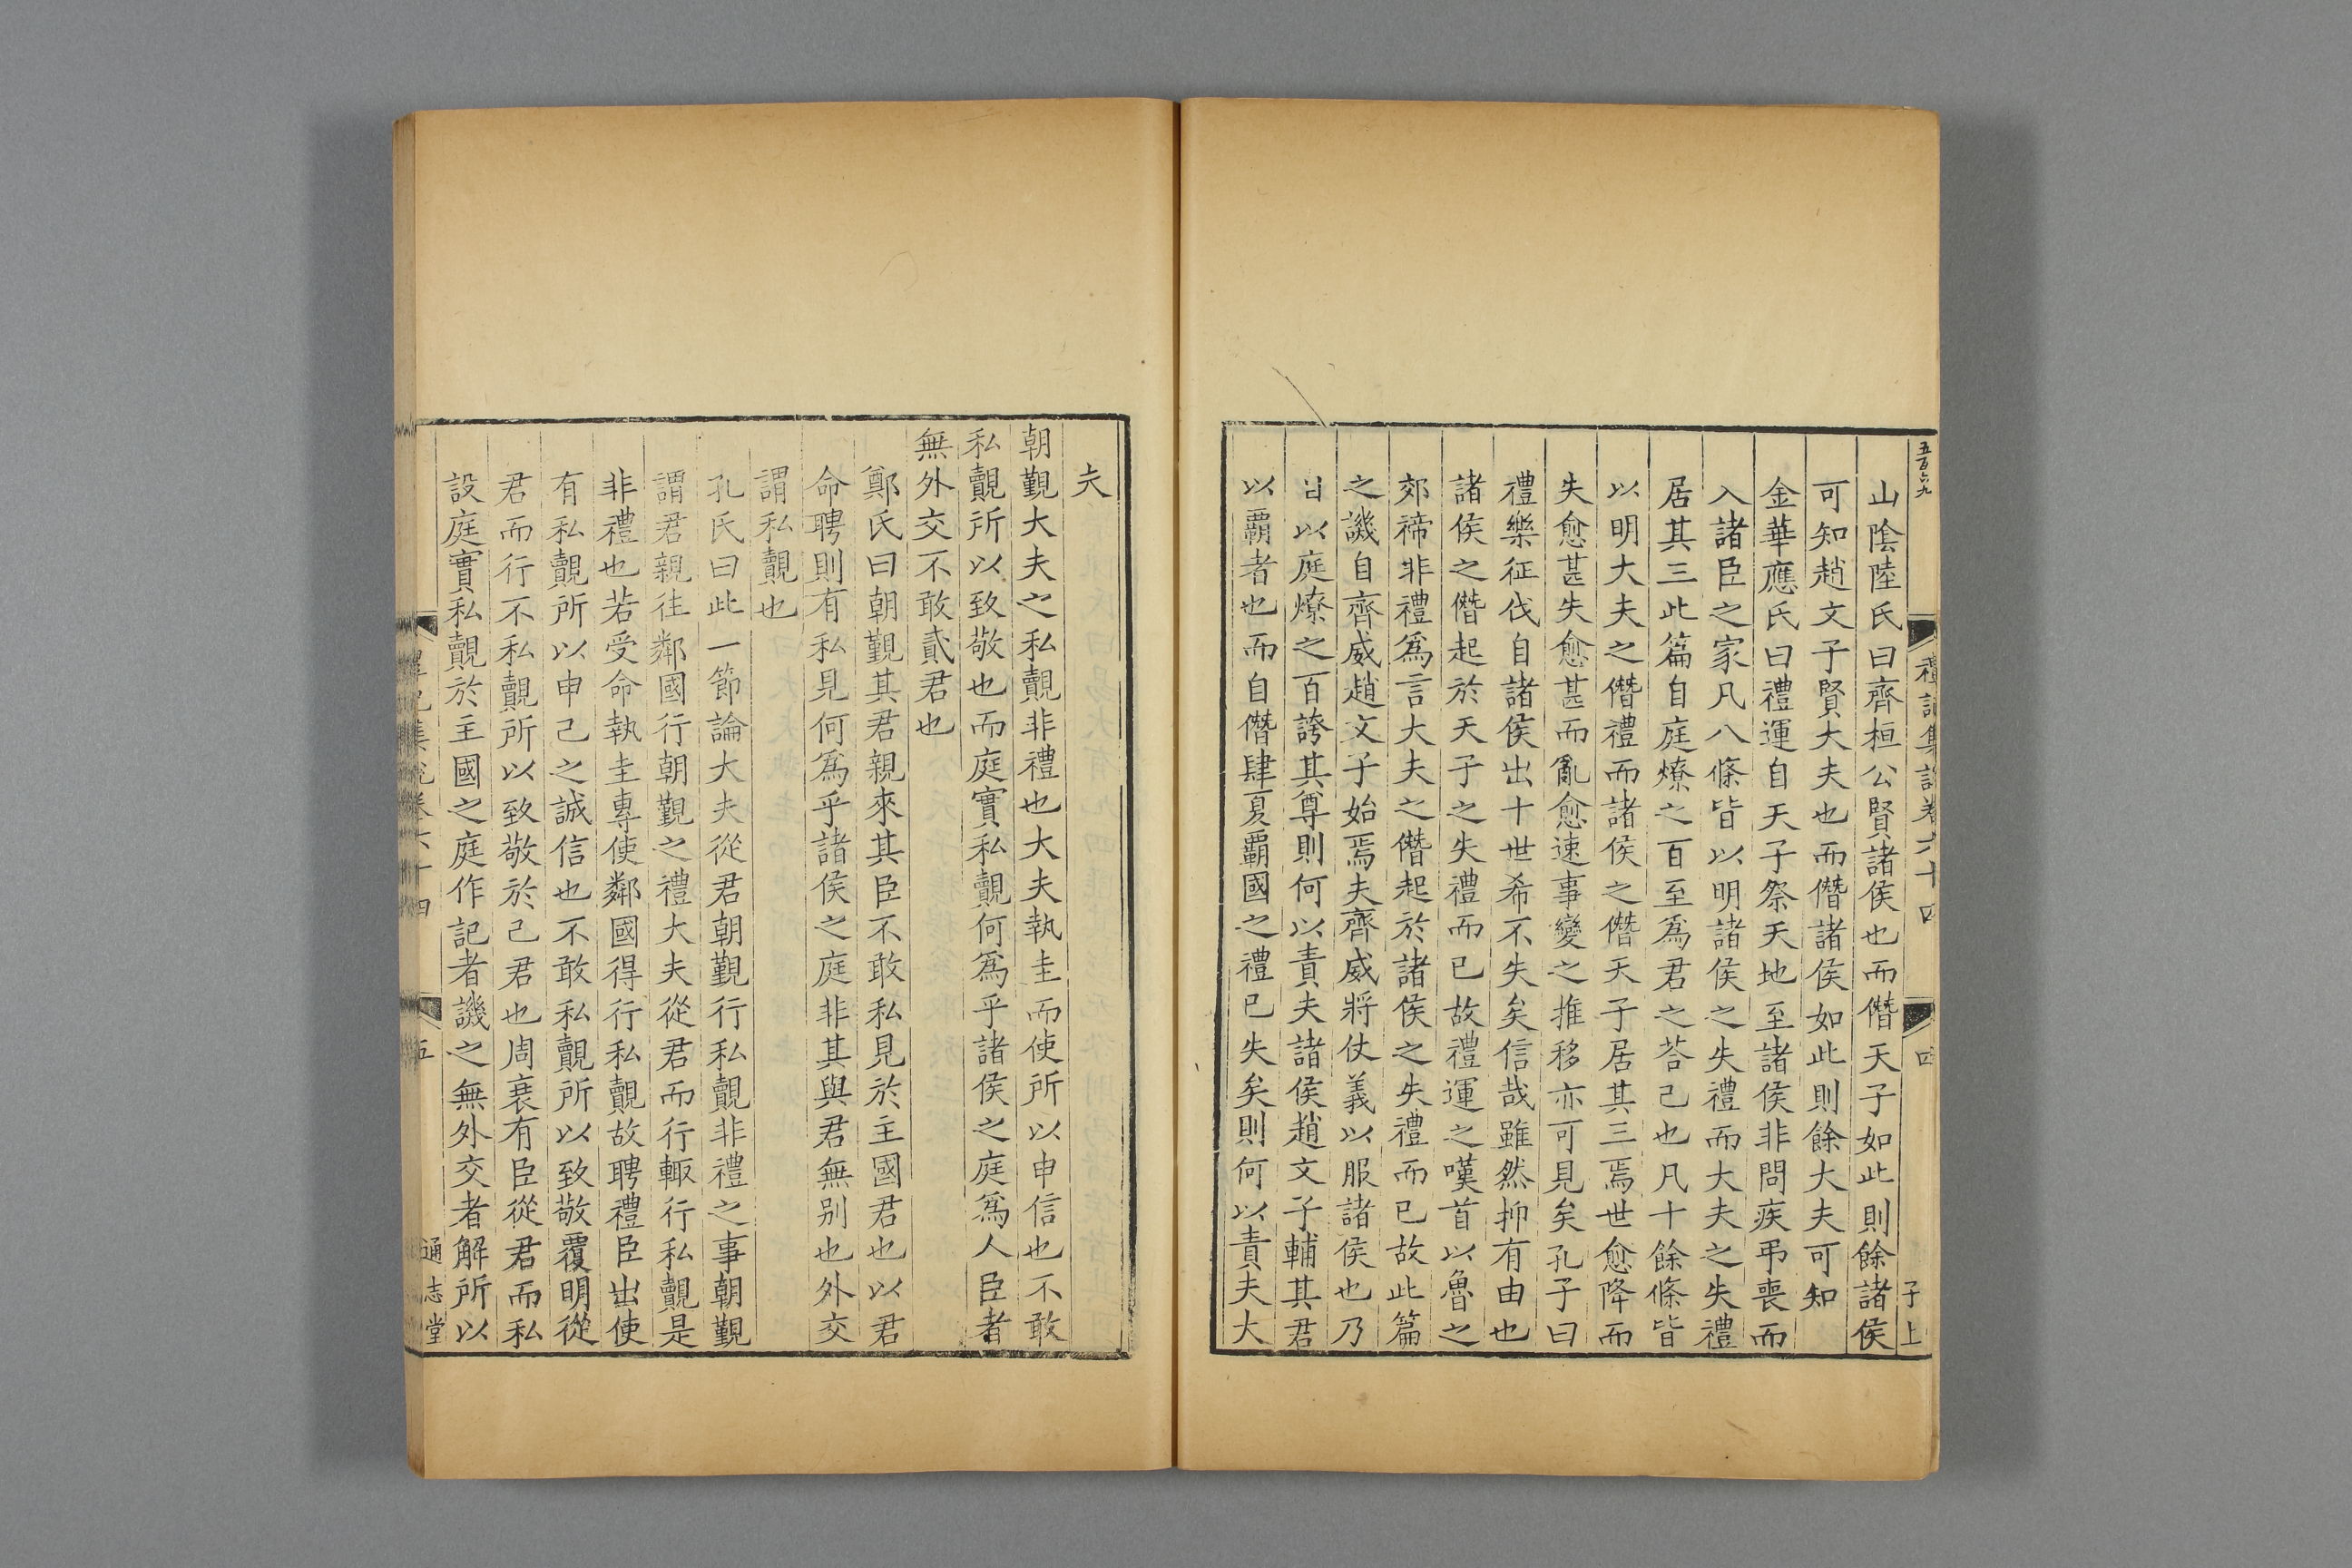 五百六九
禮記集說卷六十四
四
子上
山陰陸氏曰齊桓公賢諸侯也而僭天子如此則餘諸侯
可知趙文子賢大夫也而僭諸侯如此則餘大夫可知
金華應氏曰禮運自天子祭天地至諸侯非問疾弔喪而
入諸臣之家凡八條皆以明諸侯之失禮而大夫之失禮
居其三此篇自庭燎之百至爲君之荅己也凡十餘條皆
以明大夫之僭禮而諸侯之僭天子居其三焉世愈降而
失愈甚失愈甚而亂愈速事變之推移亦可見矣孔子曰
禮樂征伐自諸侯出十世希不失矣信哉雖然抑有由也
諸侯之僭起於天子之失禮而已故禮運之嘆首以魯之
郊禘非禮爲言大夫之僭起於諸侯之失禮而已故此篇
之譏自齊威趙文子始焉夫齊威將仗義以服諸侯也乃
以庭燎之百誇其尊則何以責夫諸侯趙文子輔其君
以霸者也而自僭肆夏霸國之禮已失矣則何以責夫大
夫
朝覲大夫之私覿非禮也大夫執圭而使所以申信也不敢
私覿所以致敬也而庭實私覿何爲乎諸侯之庭爲人臣者
無外交不敢貳君也
鄭氏曰朝覲其君親來其臣不敢私見於主國君也以君
命聘則有私見何爲乎諸侯之庭非其與君無别也外交
謂私覿也
孔氏曰此一節論大夫從君朝覲行私覿非禮之事朝覲
謂君親往鄰國行朝覲之禮大夫從君而行輙行私覿是
非禮也若受命執圭專使鄰國得行私覿故聘禮臣出使
有私覿所以申己之誠信也不敢私覿所以致敬覆明從
君而行不私覿所以致敬於己君也周衰有臣從君而私
設庭實私覿於主國之庭作記者譏之無外交者解所以
禮記集說卷六十四
五
通志堂